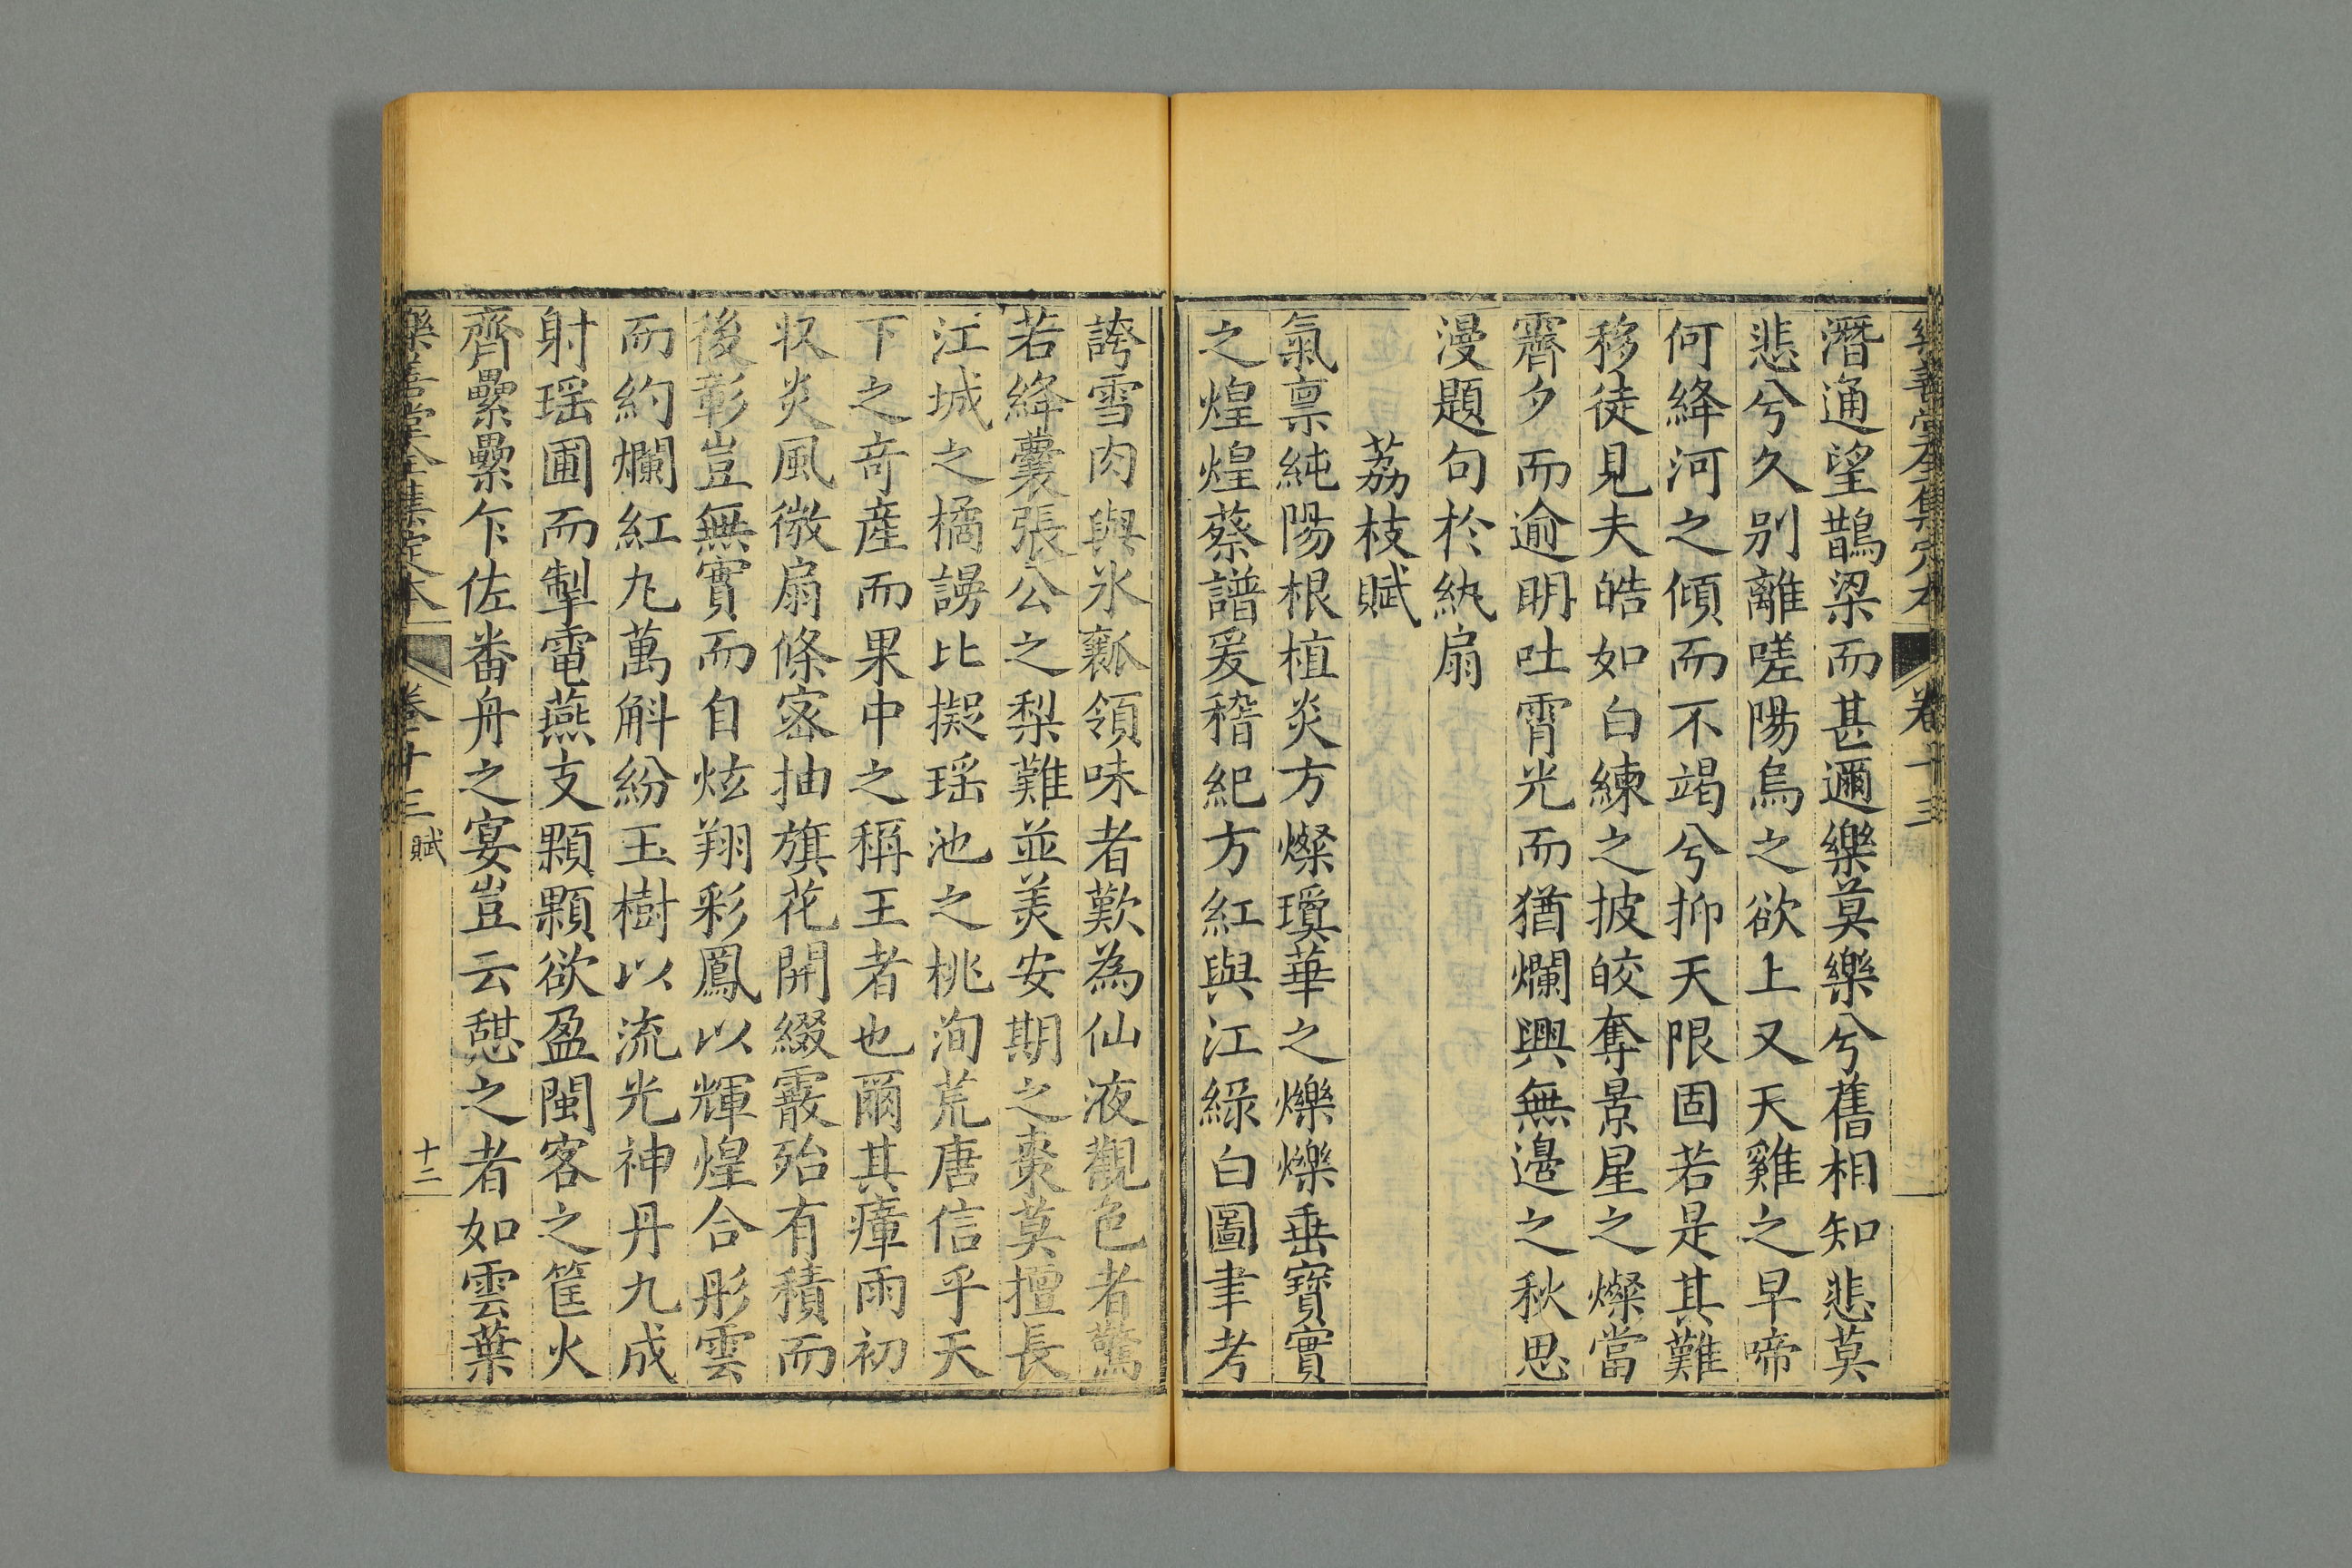 樂善堂全集定本 卷十三
潛通望鵲梁而甚邇樂莫樂兮舊相知悲莫
悲兮久别離嗟陽烏之欲上又天雞之早啼
何絳河之傾而不竭兮抑天限固若是其難
移徒見夫皓如白練之披皎奪景星之燦當
霽夕而逾明吐霄光而猶爛興無邊之秋思
漫題句於紈扇
荔枝賦
氣禀純陽根植炎方燦瓊華之爍爍垂寶實
之煌煌蔡譜爰稽紀方紅與江綠白圖聿考
誇雪肉與氷瓤領味者歎為仙液觀色者驚
若絳囊張公之梨難並美安期之棗莫擅長
江城之橘謭比擬瑶池之桃洵荒唐信乎天
下之竒產而果中之稱王者也爾其瘴雨初
収炎風微扇條密抽旗花開綴霰殆有積而
後彰豈無實而自炫翔彩鳳以輝煌合彤雲
而約爛紅九萬斛紛玉樹以流光神丹九成
射瑶圃而掣電燕支顆顆欲盈閩客之筐火
齊纍纍乍佐番舟之宴豈云憇之者如雲葉
樂善堂全集定本 卷十三 賦 十二